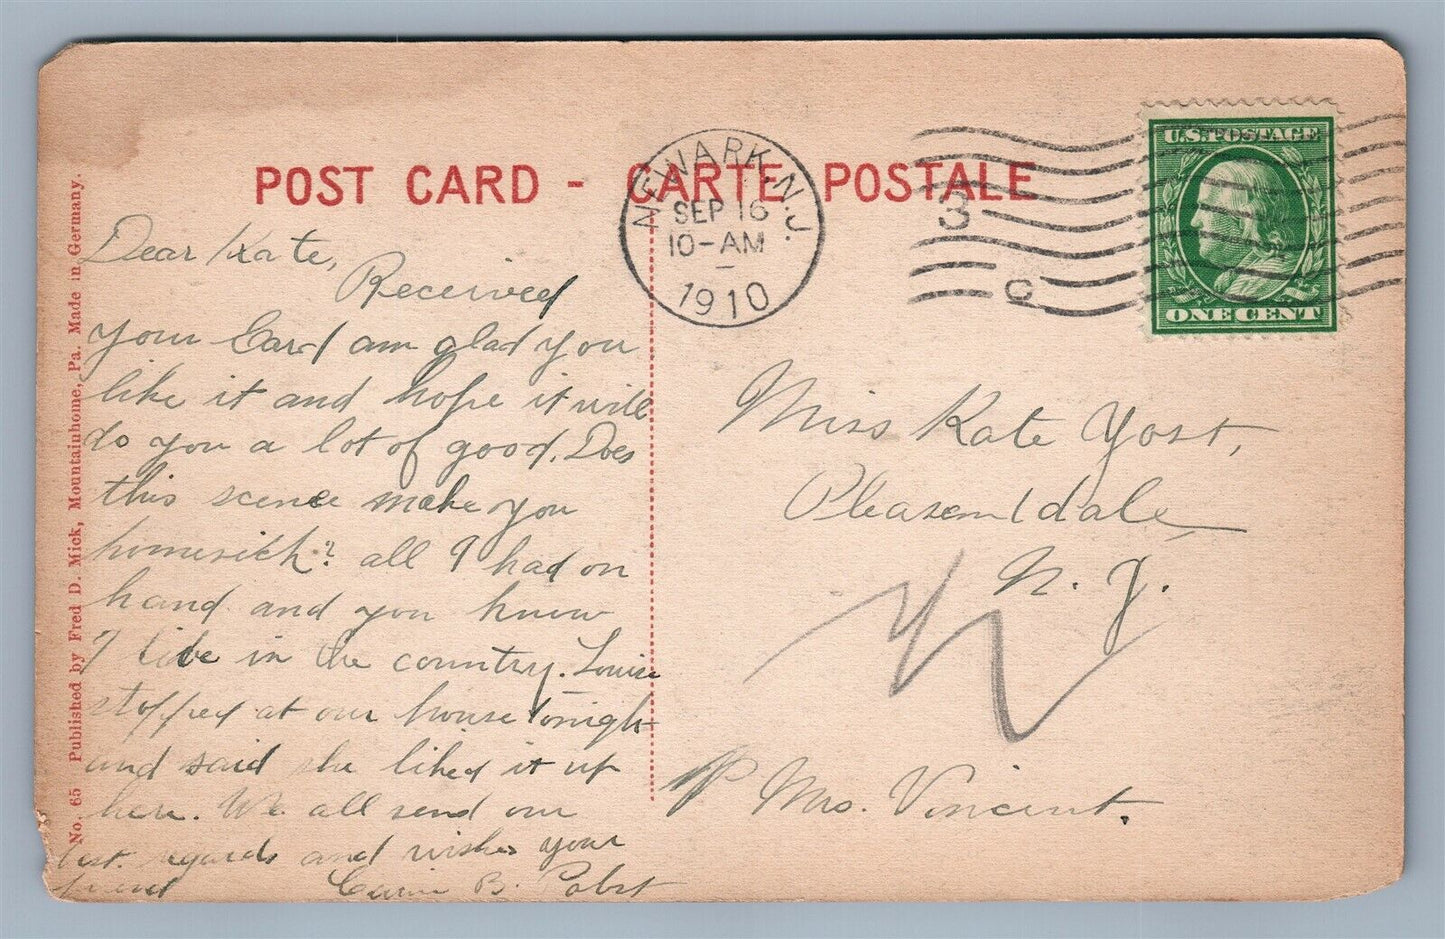 POST CARD - CARTE POSTALE
NEWARK, N.J.
SEP 16
10-AM
1910
3
C
U.S. POSTAGE
ONE CENT
No. 65 Published by Fred D. Mick, Mountainhome, Pa. Made in Germany.
Dear Kate,
Received
your Card am glad you
like it and hope it will
do you a lot of good. Does
this scence make you
homesick? all I had on
hand and you know
I libe in the country. Louise
stopped at our house tonight
and said she liked it up
here. We all send our
best regards and wishes your
friend B. Pabst
Miss Kate Yost,
Pleasantdale
N. J.
Mrs. Vincent.